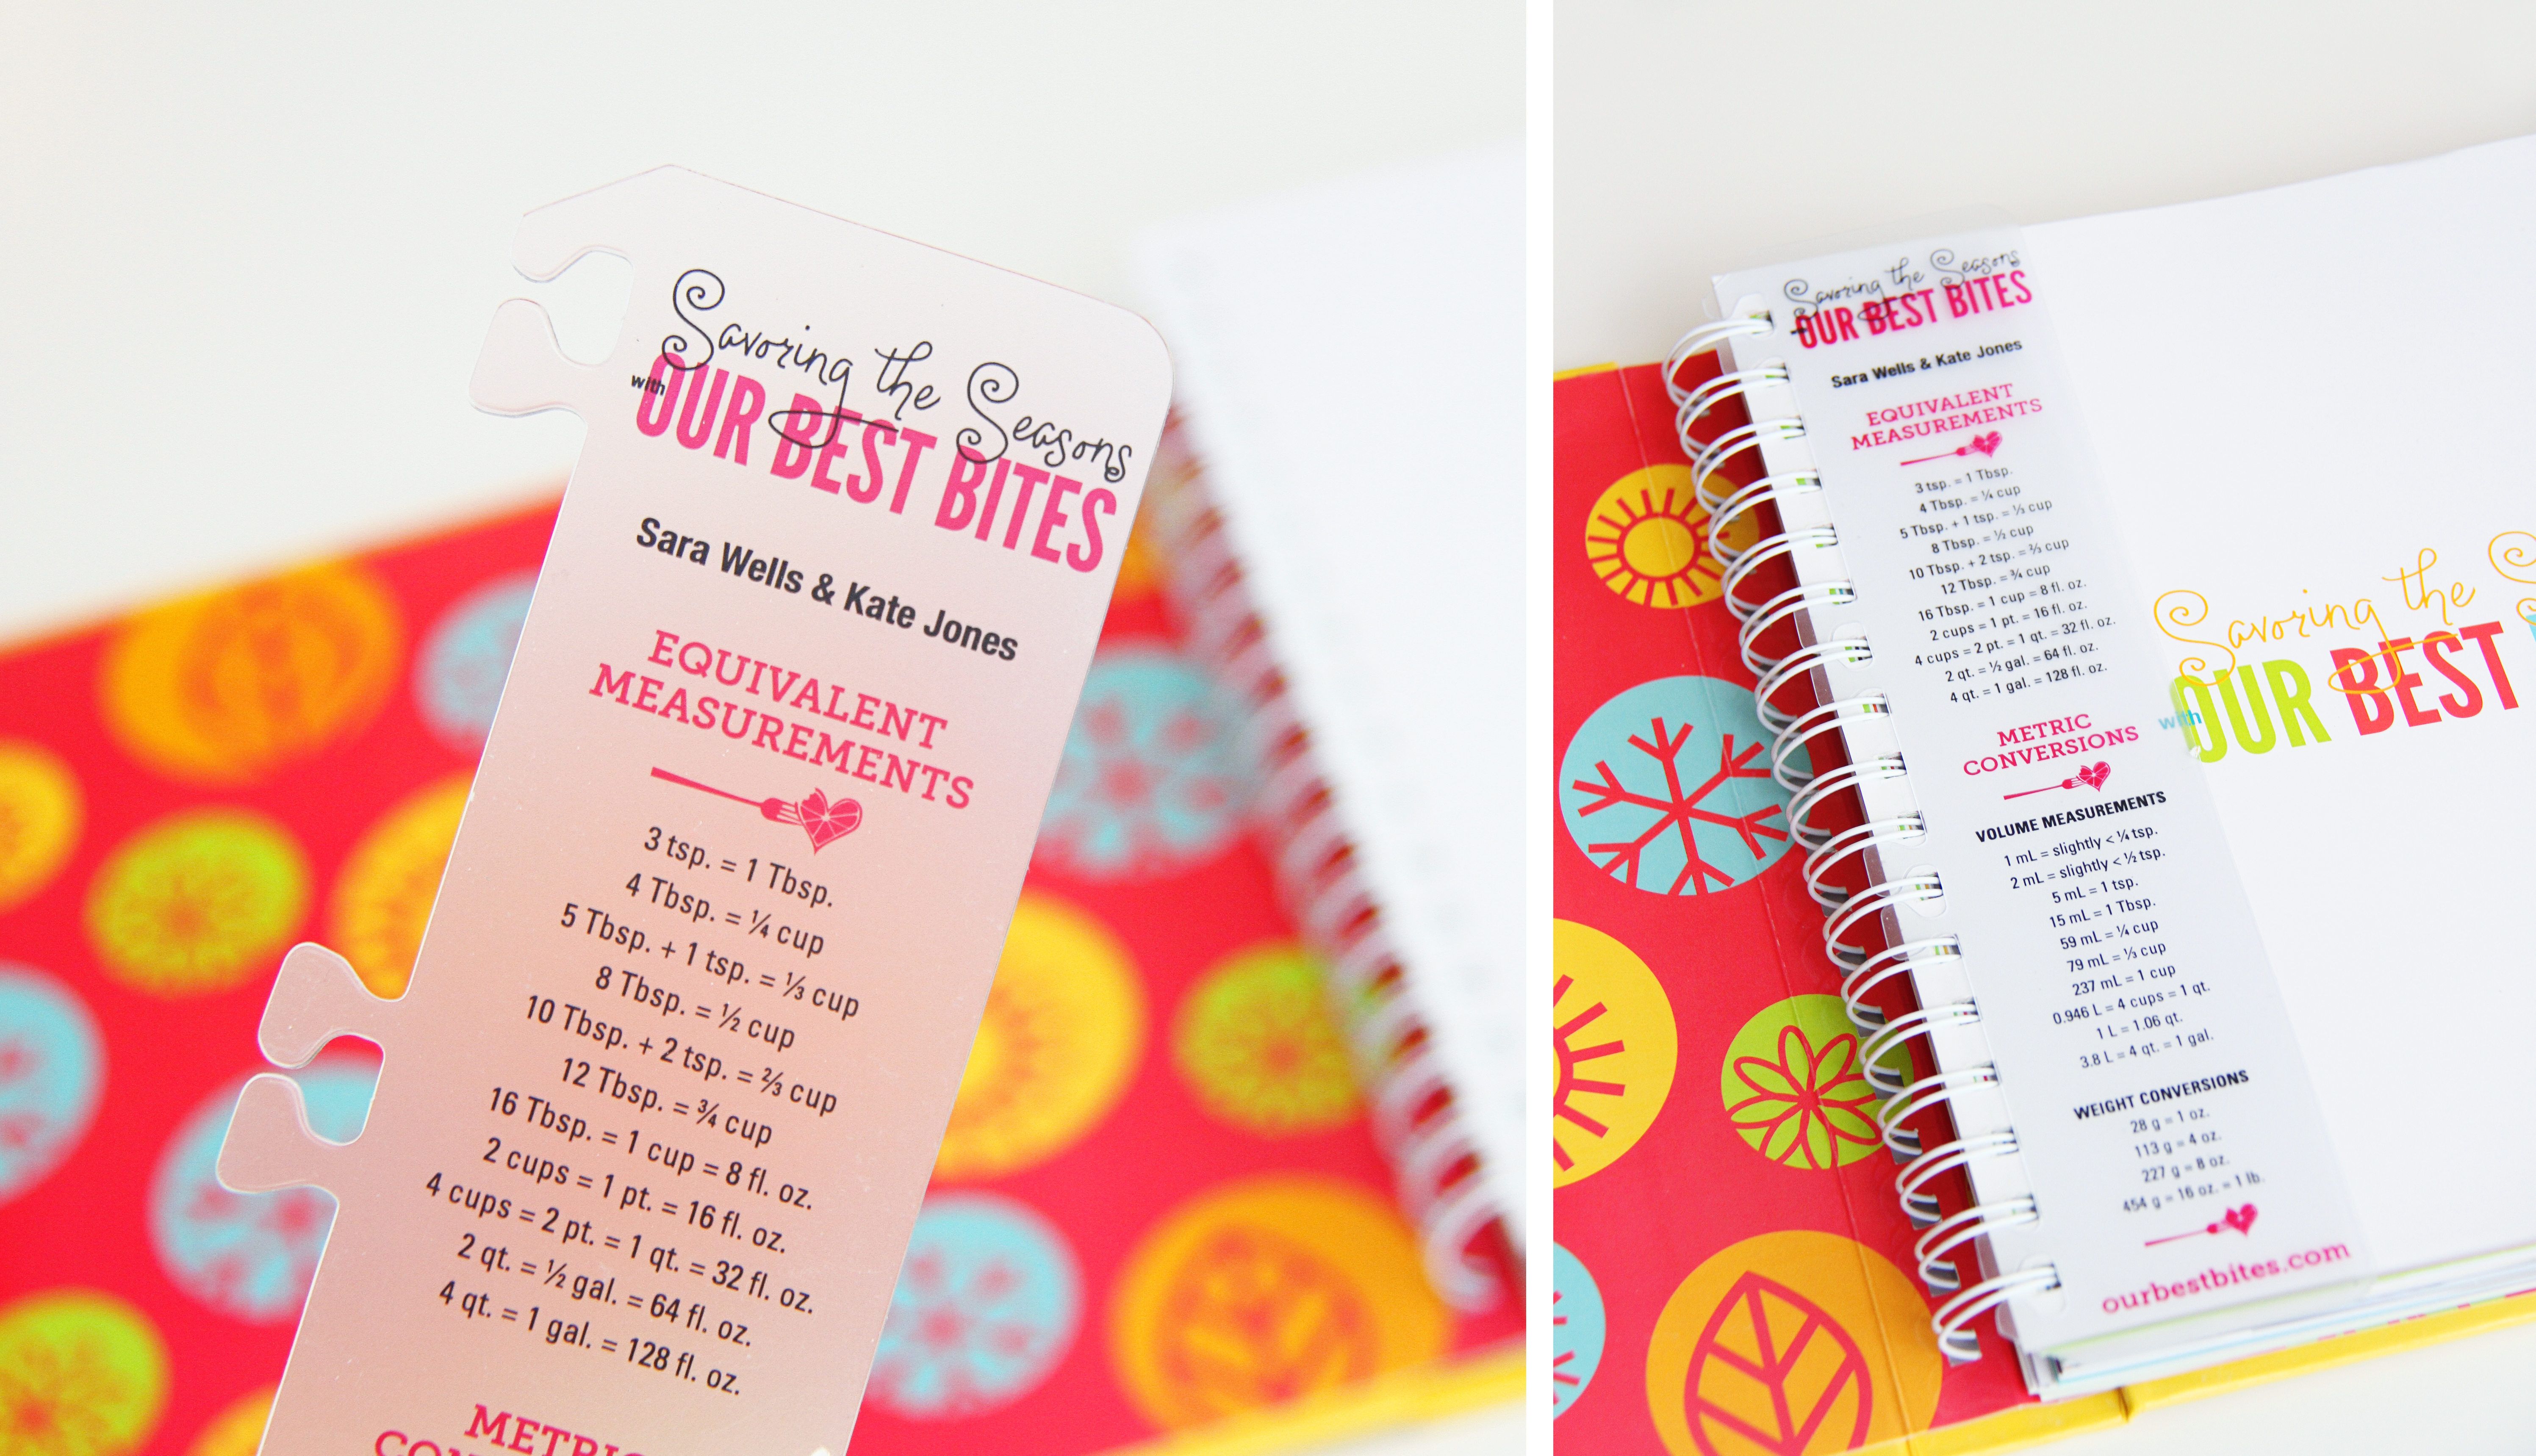 Savoring the Seasons
with OUR BEST BITES
Sara Wells & Kate Jones
EQUIVALENT
MEASUREMENTS
3 tsp. = 1 Tbsp.
4 Tbsp. = ¼ cup
5 Tbsp. + 1 tsp. = ⅓ cup
8 Tbsp. = ½ cup
10 Tbsp. + 2 tsp. = ⅔ cup
12 Tbsp. = ¾ cup
16 Tbsp. = 1 cup = 8 fl. oz.
2 cups = 1 pt. = 16 fl. oz.
4 cups = 2 pt. = 1 qt. = 32 fl. oz.
2 qt. = ½ gal. = 64 fl. oz.
4 qt. = 1 gal. = 128 fl. oz.
Savoring the Seasons
OUR BEST BITES
Sara Wells & Kate Jones
EQUIVALENT
MEASUREMENTS
3 tsp. = 1 Tbsp.
4 Tbsp. = ¼ cup
5 Tbsp. + 1 tsp. = ⅓ cup
8 Tbsp. = ½ cup
10 Tbsp. + 2 tsp. = ⅔ cup
12 Tbsp. = ¾ cup
16 Tbsp. = 1 cup = 8 fl. oz.
2 cups = 1 pt. = 16 fl. oz.
4 cups = 2 pt. = 1 qt. = 32 fl. oz.
2 qt. = ½ gal. = 64 fl. oz.
4 qt. = 1 gal. = 128 fl. oz.
METRIC
CONVERSIONS
VOLUME MEASUREMENTS
1 mL = slightly < ¼ tsp.
2 mL = slightly < ½ tsp.
5 mL = 1 tsp.
15 mL = 1 Tbsp.
59 mL = ¼ cup
79 mL = ⅓ cup
237 mL = 1 cup
0.946 L = 4 cups = 1 qt.
1 L = 1.06 qt.
3.8 L = 4 qt. = 1 gal.
WEIGHT CONVERSIONS
28 g = 1 oz.
113 g = 4 oz.
227 g = 8 oz.
454 g = 16 oz. = 1 lb.
ourbestbites.com
Savoring the S
with OUR BEST